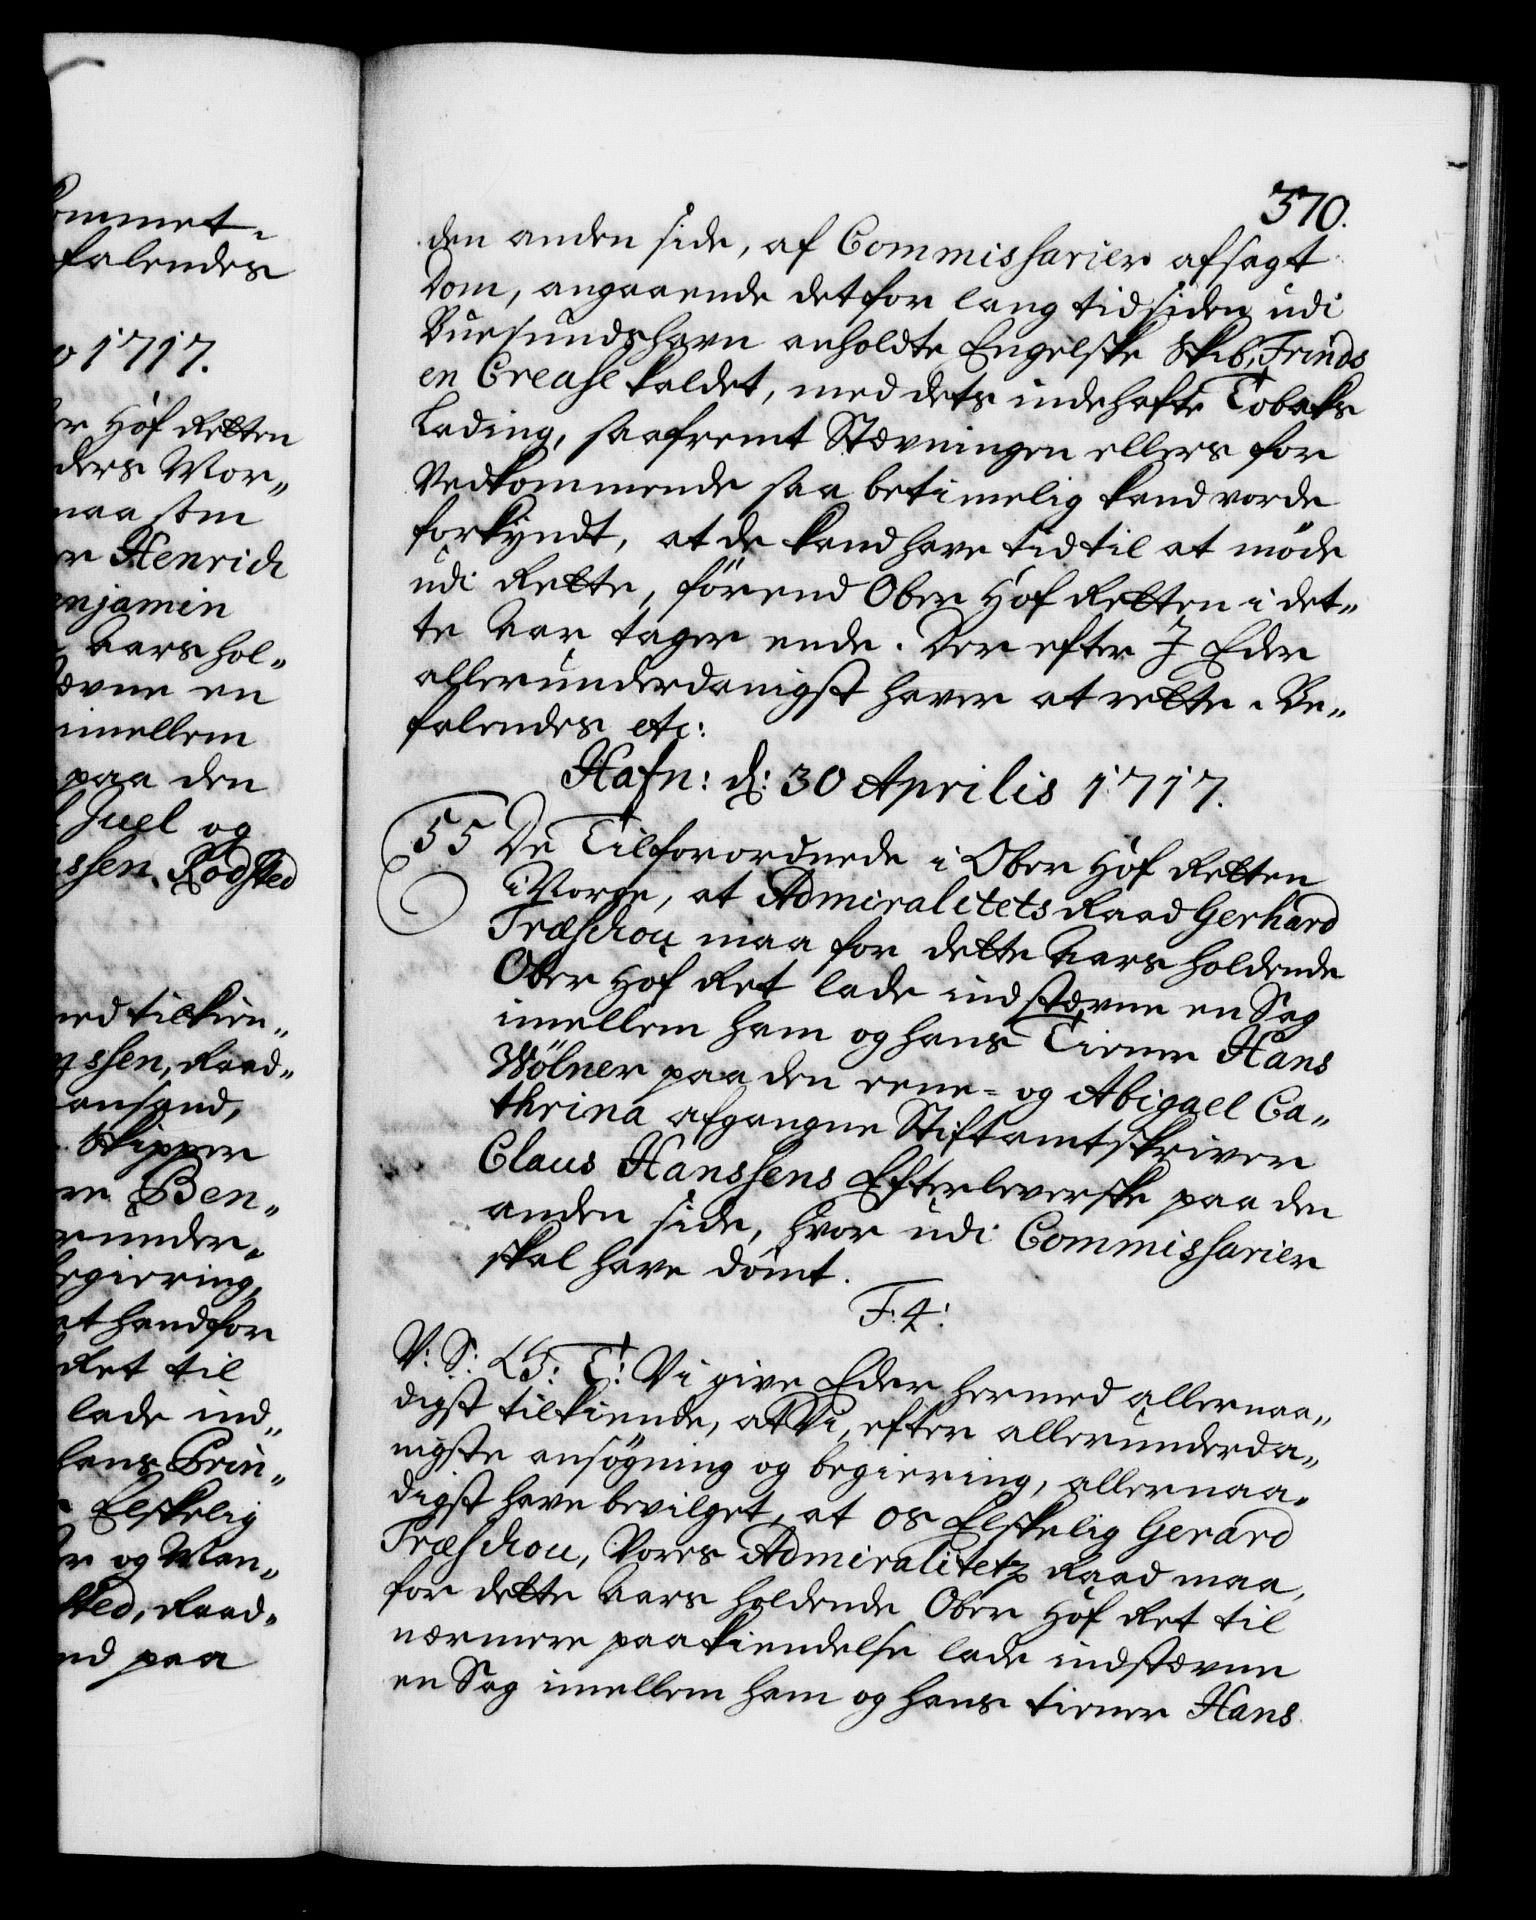 ommet.
falendes
o 1717.
er Hof Retten
ders Mor„
naa som
er Henrich
enjamin
Aars hol„
tævne en
imellem
paa den
Juel og
ssen Rodsted
ned tilkien„
ssen, Raad„
ansand,
Skipper
re Ben„
runder„
egiering,
at hand for
Ret til
lade ind„
hans Prin„
Elskelig
er og Man„
sted, Raad„
nd paa
370.
den anden side, af Commissarier afsagt
Dom, angaaende det for lang tid siden udi
Buesundshavn anholdte Engelske Skib, Frinds
en Crease kaldet, med dets indehafte Tobaks
Lading, saafremt Stævningen ellers for
Vedkommende saa betimelig kand vorde
forkyndt, at de kand have tid til at møde
udi Rette, førend Ober Hof Retten i det„
te Aar tager ende. Der efter I Eder
allerunderdanigst haver at rette. Be„
falendes etc:
Hafn: d: 30 Aprilis 1717.
55 De Tilforordnede i Ober Hof Retten
i Norge, at Admiralitets Raad Gerhard
Træschou maa for dette Aars holdende
Ober Hof Ret lade indstævne en Sag
imellem ham og hans Tiener Hans
Wölner paa den eene- og Abigael Ca„
thrina afgangne Stiftamtskriver
Claus Hanssens Efterleverske paa den
anden side, hvor udi Commissarier
skal have dømt.
F: 4:
V: S: G: T: Vi give Eder hermed allernaa„
digst tilkiende, at Vi, efter allerunderda„
nigste ansøgning og begiering, allernaa„
digst have bevilget, at os Elskelig Gerard
Træschou, Vores Admiralitetz Raad maa,
for dette Aars holdende Ober Hof Ret til
nærmere paakiendelse lade indstævne
en Sag imellem ham og hans tiener Hans